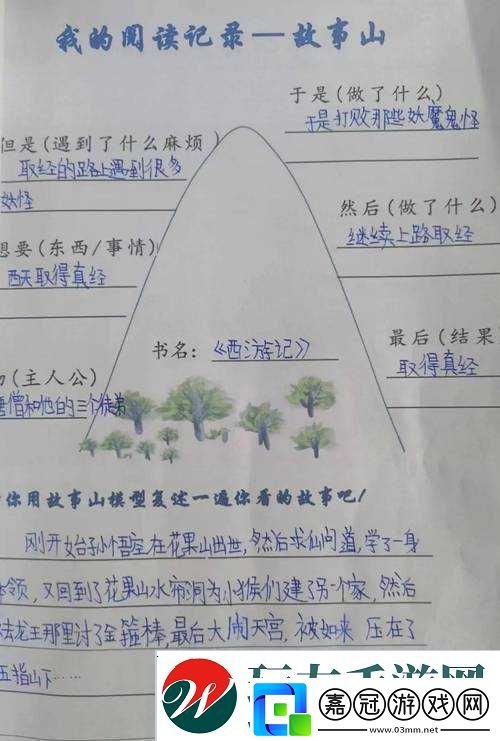 我的阅读记录—故事山
于是(做了什么)
于是打败那些妖魔鬼怪
但是(遇到了什么麻烦)
取经的路上遇到很多
妖怪
然后(做了什么)
继续上路取经
想要(东西/事情)
西天取得真经
最后(结果
取得真经
书名:《西游记》
(主人公)
唐僧和他的三个徒弟
你用故事山模型复述一遍你看的故事吧!
刚开始孙悟空在花果山出世,然后求仙问道,学了一身
本领,又回到了花果山水帘洞为小猴们建了另一个家,然后
去龙王那里讨了金箍棒,最后大闹天宫,被如来压在了
五指山下……
嘉冠游戏网
www.03mm.net